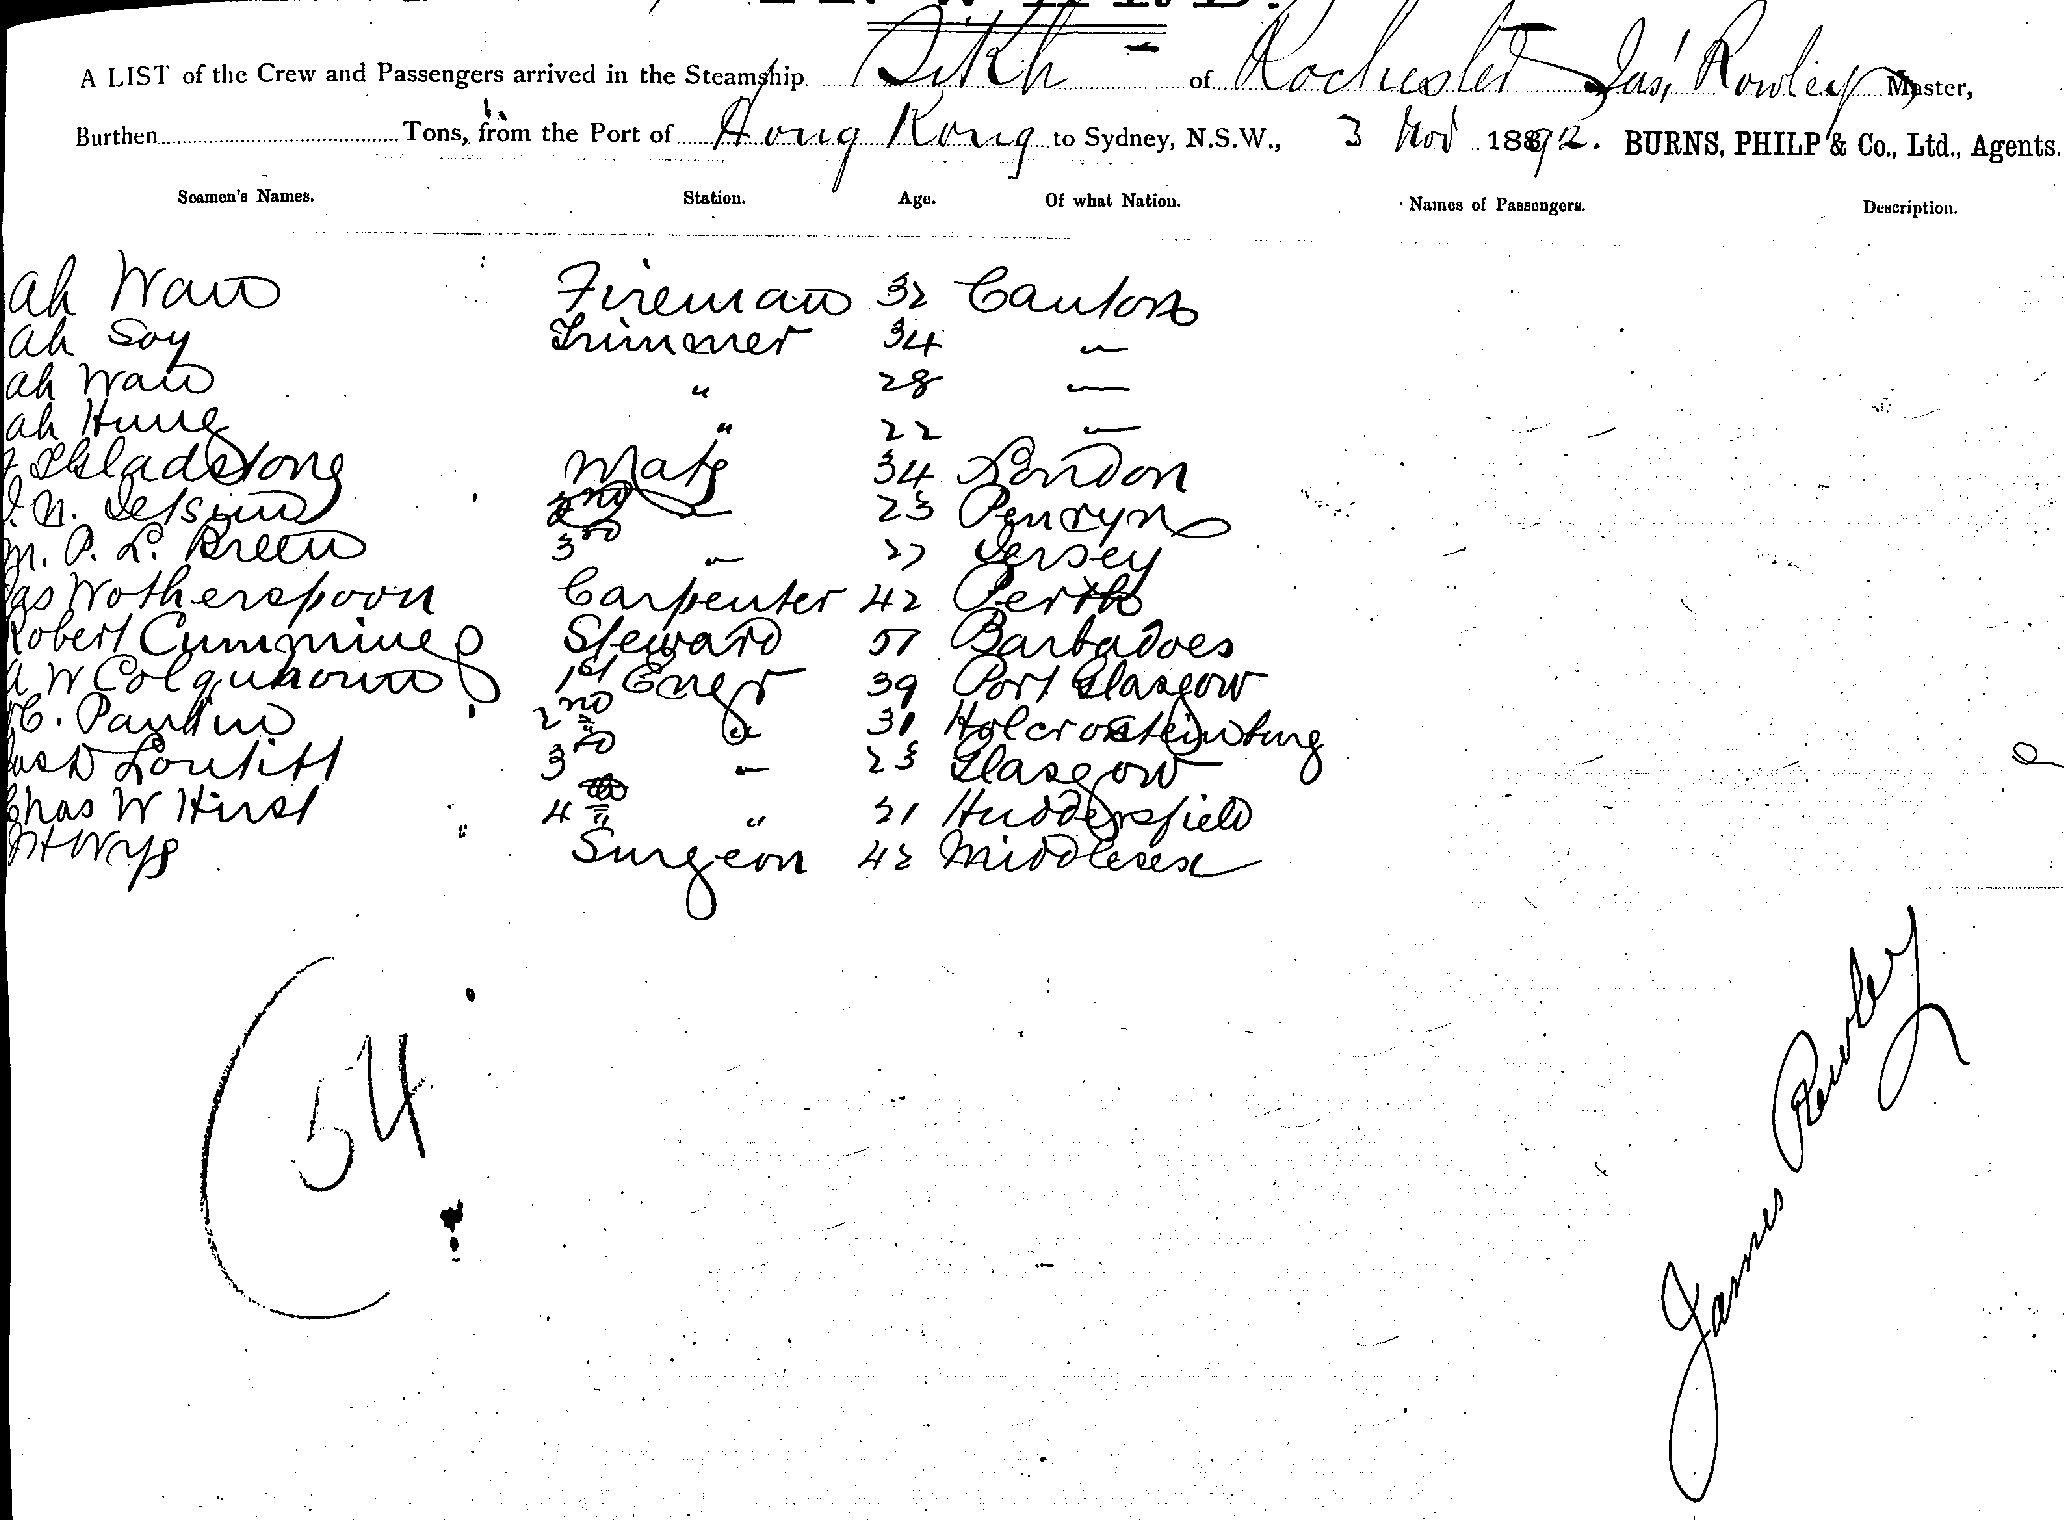 A LIST of the Crew and Passengers arrived in the Steamship Sikh of Rochester Jas. Rowley Master,
Burthen Tons, from the Port of Hong Kong to Sydney, N.S.W., 3 Nov 1892. BURNS, PHILP & Co., Ltd., Agents.
Seamen's Names. Station. Age. Of what Nation. Names of Passengers. Description.
Ah Wan Fireman 32 Canton
Ah Soy Trimmer 34 "
Ah Wan " 28 "
Ah Hung " 22 "
Gladstone Mate 34 London
2nd " 23 Penryn
M. P. L. Breen 3rd " 27 Jersey
Jas Wotherspoon Carpenter 42 Perth
Robert Cummings Steward 51 Barbadoes
A W Colquhoun 1st Engr 39 Port Glasgow
2nd " 31
Loutitt 3rd " 23 Glasgow
Chas W Hirst 4 " 21 Huddersfield
Surgeon 42 Middlesex
54
James Rowley